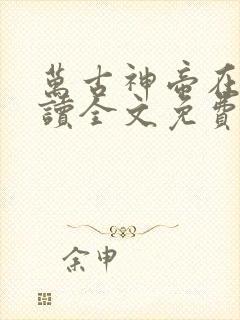 萬古神帝在
讀全文免費
余申